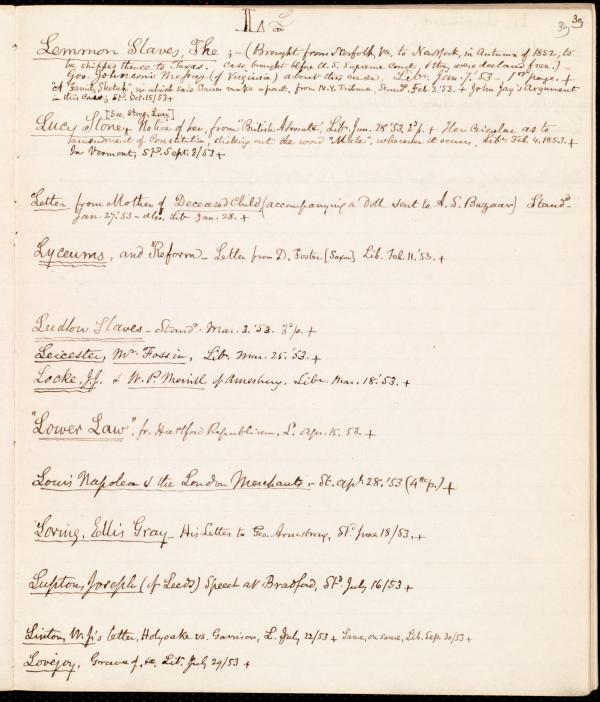 L L 39 39
Lemmon Slaves, The ;— (Brought from Norfolk, Va. to New York, in Autumn of 1852, to
be shipped thence to Texas. Case brought before U.S. Supreme Court, & they were declared free.)—
Gov. Johnson's Message (of Virginia) about this case, Libr. Jan. 7. '53 — 1st page. +
"A Family Sketch", in which said Slaves make a part, from N.Y. Tribune, Stand. Feb. 3. '53. + John Jay's Argument
in this Case; St. Oct. 15/53 +
[See, Stone, Lucy]
Lucy Stone, Notice of her, from "British Advocate", Libr. Jan. 28 '53, 1st p. + Her Circular as to
Amendment of Constitution, striking out the word "Male", wherever it occurs, Libr. Feb. 4. 1853. +
In Vermont, Std. Sept. 3/53 +
Letter from Mother of Deceased Child (accompanying a Doll sent to A. S. Bazaar) Stand.
Jan. 27. '53 — also. Lib. Jan. 28. +
Lyceums, and Reform — Letter from D. Foster [Saxon] Lib. Feb. 11. '53. +
Ludlow Slaves — Stand. Mar. 3. '53. 3d p. +
Leicester, Mr. Foss in, Libr. Mar. 25. '53. +
Locke, J.J. & W. P. Merrill of Amesbury. Libr. Mar. 18. '53. +
"Lower Law", fr. Hartford Republican, L. Apr. 15. 53. +
Louis Napoleon & the London Merchants — St. Apl. 28. '53 (4th p.) +
Loring, Ellis Gray — His Letter to Geo. Armstrong, Std June 18/53. +
Lupton, Joseph (of Leeds) Speech at Bradford, Std July 16/53 +
Linton, W. J.'s letter, Holyoake vs. Garrison, L. July 22/53 + Same, on same, Lib. Sep. 30/53 +
Lovejoy, Grave of, &c, Lib. July 29/53 +